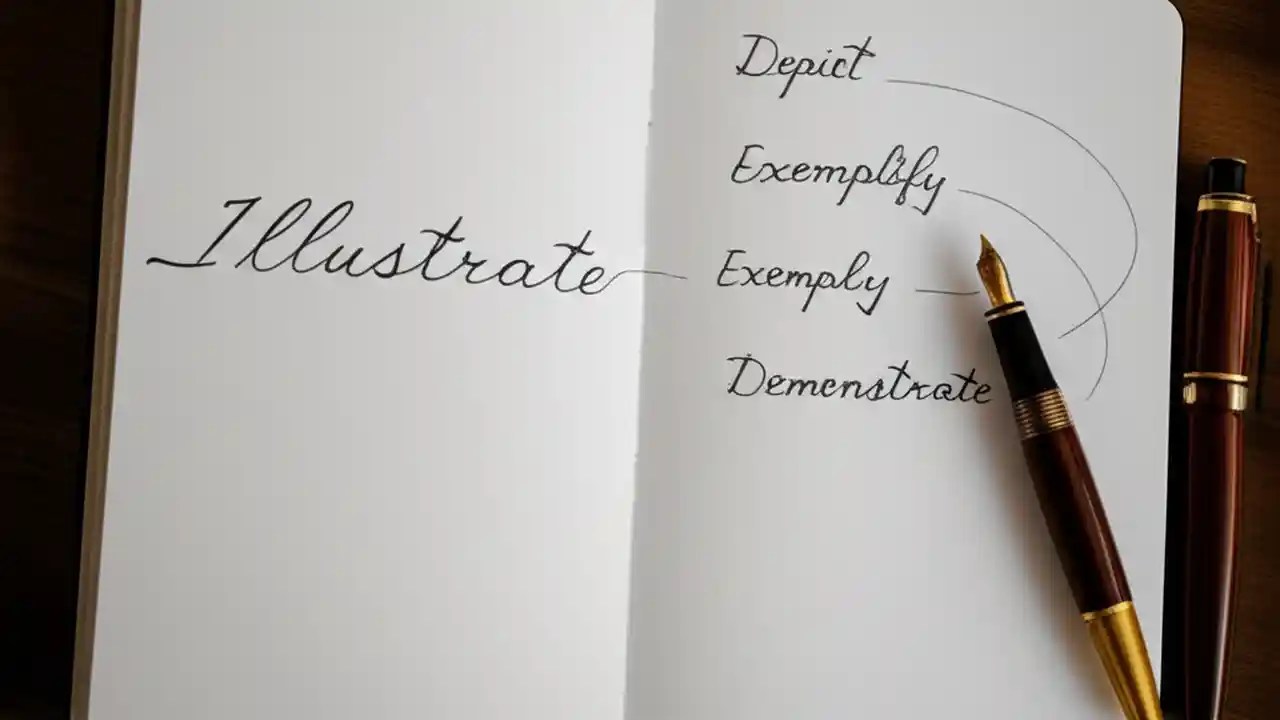 Illustrate
Depict
Exemplify
Exemply
Demenstrate